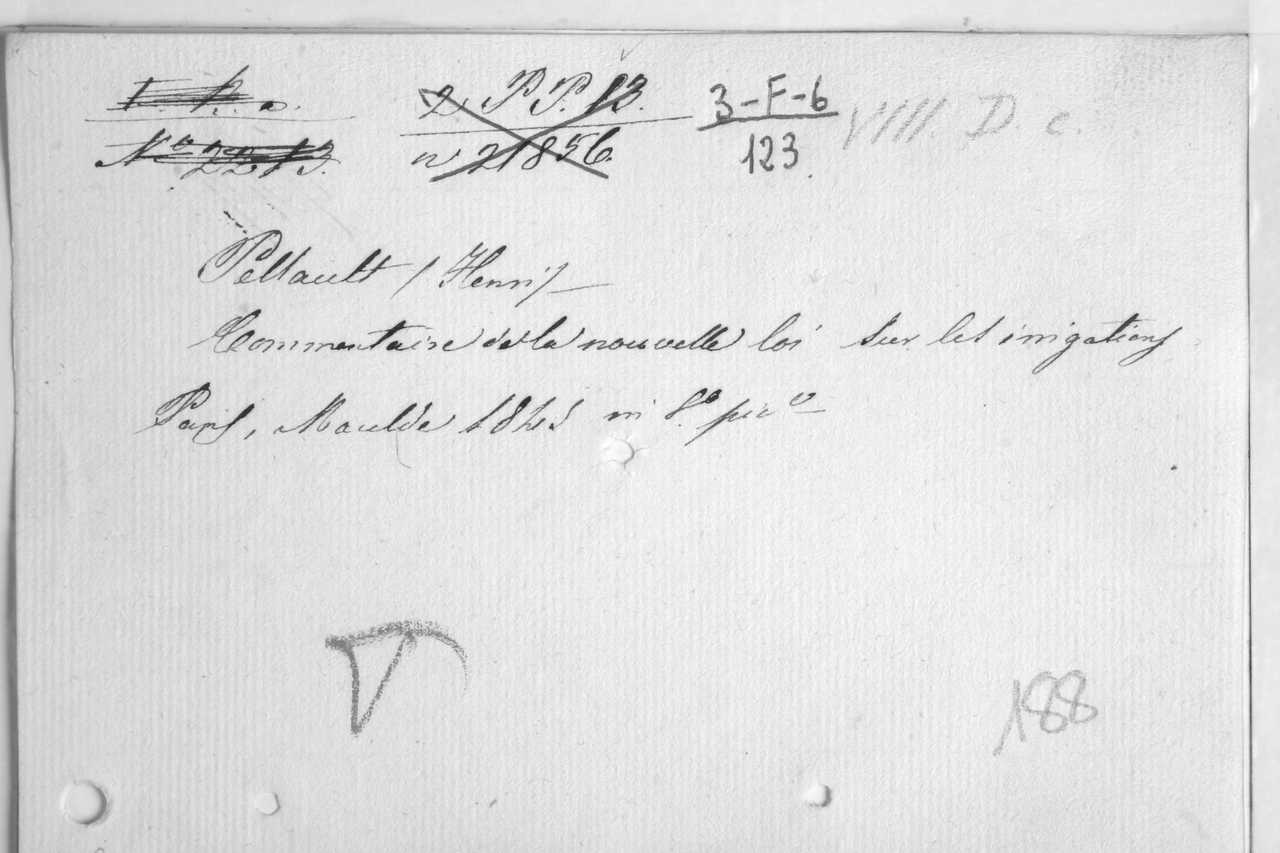 T. R. a. 2. PP. 13. 3-F-6 VIII. D. c.
N° 2213. n° 21856. 123
Pellault (Henri)
Commentaire de la nouvelle loi sur les irrigations
Paris, Maulde 1845 in 8° pce
188